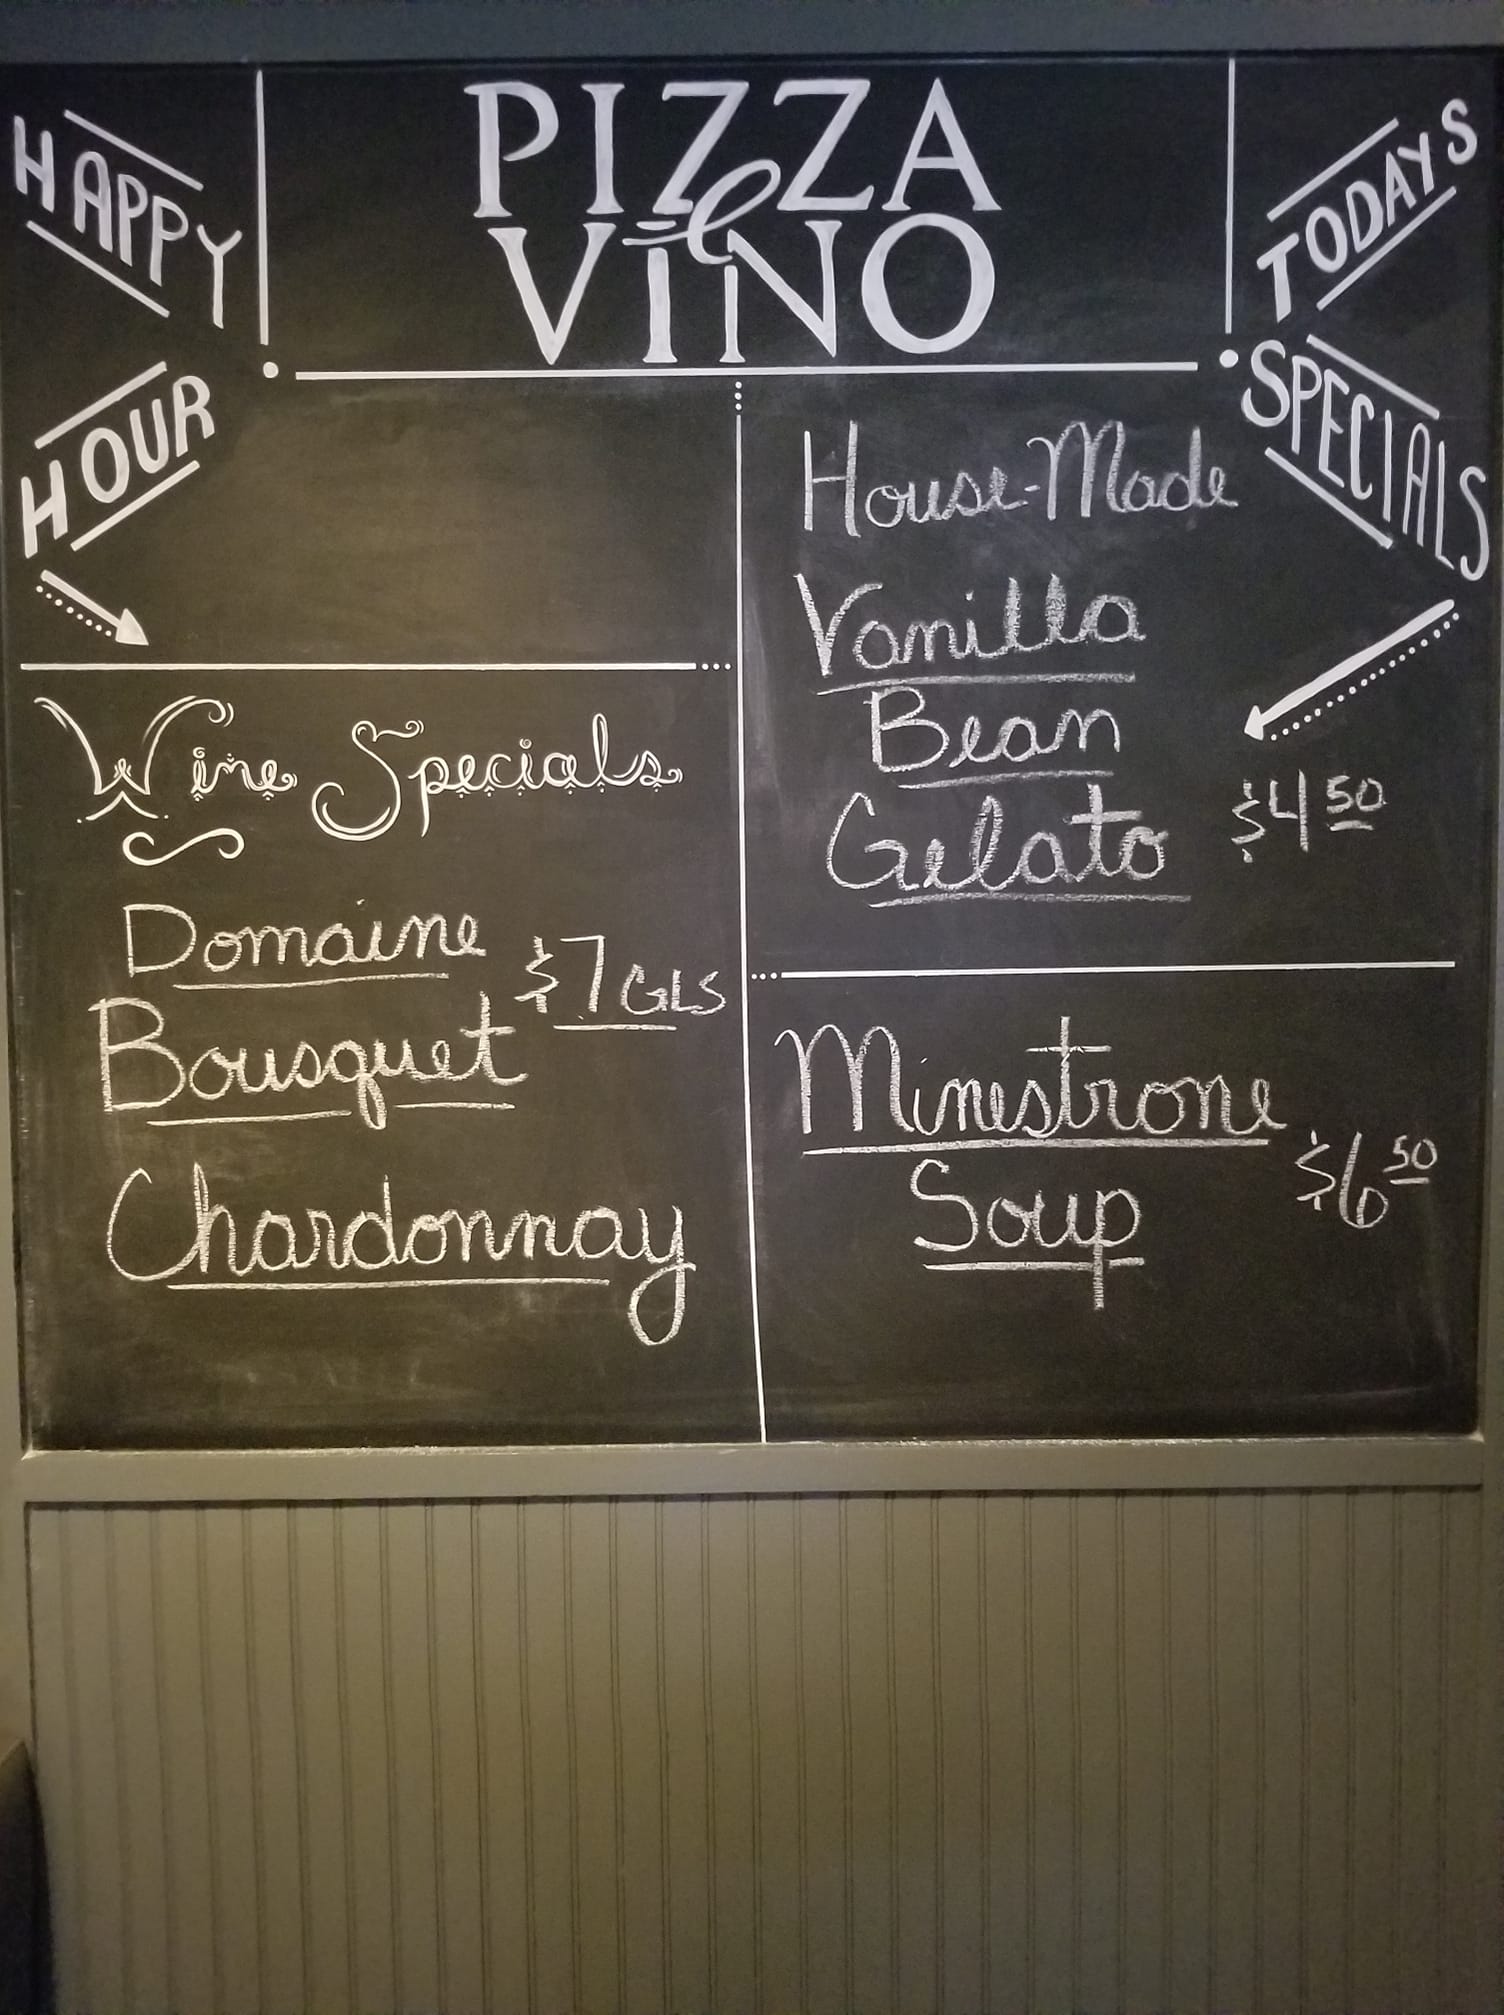 PIZZA
e
VINO
HAPPY
HOUR
Wine Specials
Domaine
$7 GLS
Bousquet
Chardonnay
TODAYS
SPECIALS
House-Made
Vanilla
Bean
Gelato $4 50
Minestrone
Soup $6 50